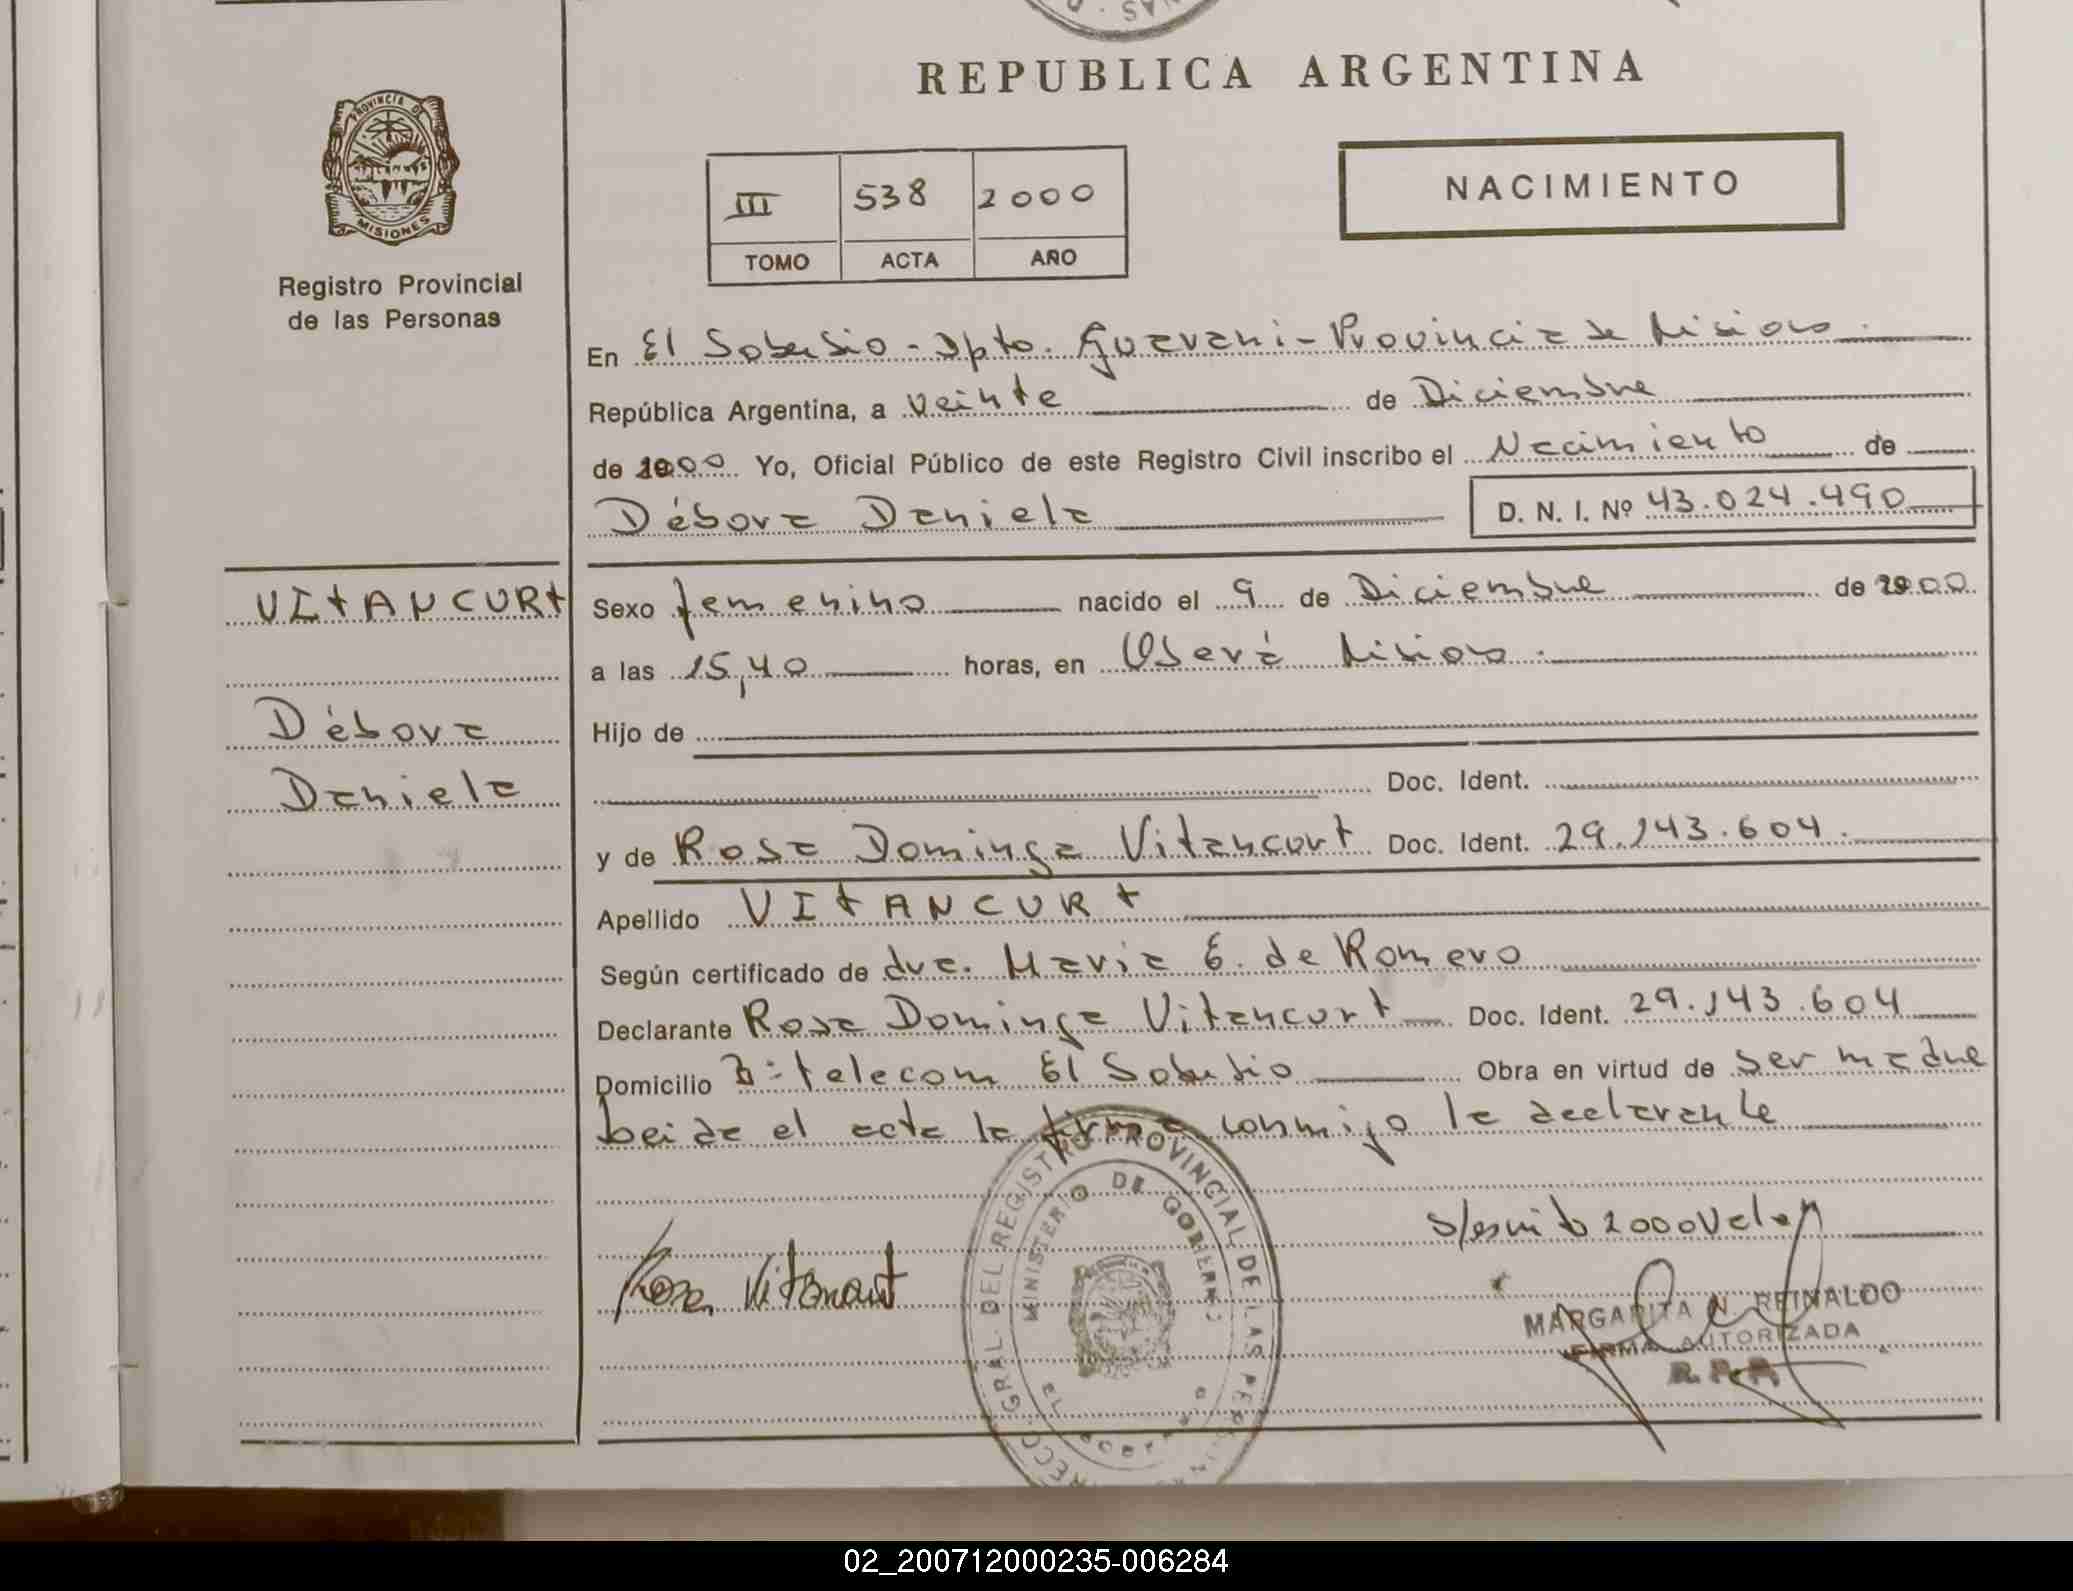 REPUBLICA ARGENTINA
PROVINCIA DE MISIONES
Registro Provincial
de las Personas
III 538 2000
TOMO ACTA AÑO
NACIMIENTO
En El Soberbio - Dpto. Guarani - Provincia de Misiones.
República Argentina, a veinte de Diciembre
de 2000 Yo, Oficial Público de este Registro Civil inscribo el Nacimiento de
Débora Daniela D. N. I. Nº 43.024.490
VItANCURt
Débora
Daniela
Sexo femenino nacido el 9 de Diciembre de 2000
a las 15,40 horas, en Oberá Misiones.
Hijo de
Doc. Ident.
y de Rosa Dominga Vitancurt Doc. Ident. 29.143.604.
Apellido VItANCURt
Según certificado de dra. Maria E. de Romero
Declarante Rosa Dominga Vitancurt Doc. Ident. 29.143.604
Domicilio Bº telecom El Soberbio Obra en virtud de ser madre
leida el acta la firma conmigo la declarante
Rosa Vitancurt
2000 Vale
MARGARITA N. REINALDO
FIRMA AUTORIZADA
R. P. P.
GRAL. DEL REGISTRO PROVINCIAL DE LAS PER
MINISTERIO DE GOBIERNO
02_200712000235-006284